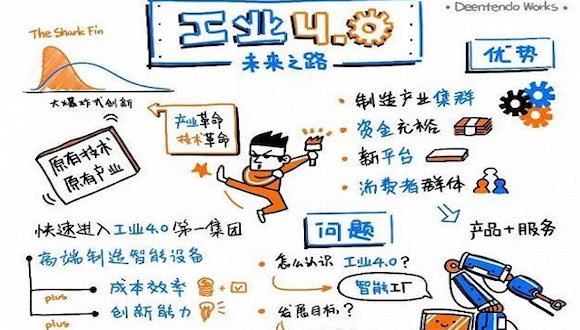 · Deentendo Works ·
工业4.0
未来之路
The Shark Fin
大爆炸式创新
产业革命
技术革命
原有技术
原有产业
优势
· 制造产业集群
· 资金充裕
· 新平台
· 消费者群体
产品+服务
快速进入工业4.0第一集团
高端制造智能设备
plus
成本效率
+
plus
创新能力
问题
· 怎么认识工业4.0?
智能工厂
· 发展目标?